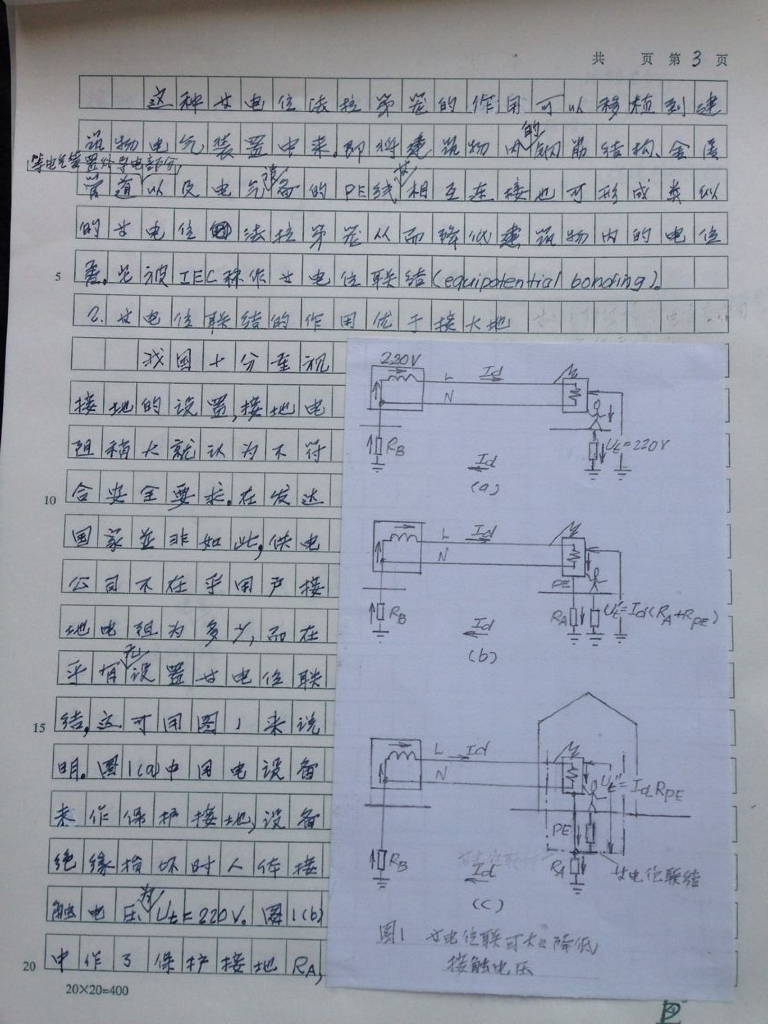 共 页 第 3 页
这种等电位法拉第笼的作用可以移植到建
筑物电气装置中来.即将建筑物内的钢筋结构、金属
等电气装置外导电部分
管道以及电气设备的PE线相互连接也可形成类似
的等电位法拉第笼从而降低建筑物内的电位
差.它被IEC称作等电位联结(equipotential bonding).
5
2.等电位联结的作用优于接大地
我国十分重视
接地的设置,接地电
阻稍大就认为不符
合安全要求.在发达
10
国家并非如此,供电
公司不在乎用户接
地电阻为多少,而在
乎有无设置等电位联
结,这可用图1来说
15
明.图1(a)中用电设备
未作保护接地,设备
绝缘损坏时人体接
触电压为Ut=220V.图1(b)
中作了保护接地RA,
20
20×20=400
220V
L Id
N
RB
Id
Ut=220V
(a)
L Id
N
PE
RB
RA
Ut'=Id(RA+RPE)
Id
(b)
L Id
N
Ut"=IdRPE
PE
RB
RA
Id
等电位联结
(c)
图1 等电位联可大大降低
接触电压